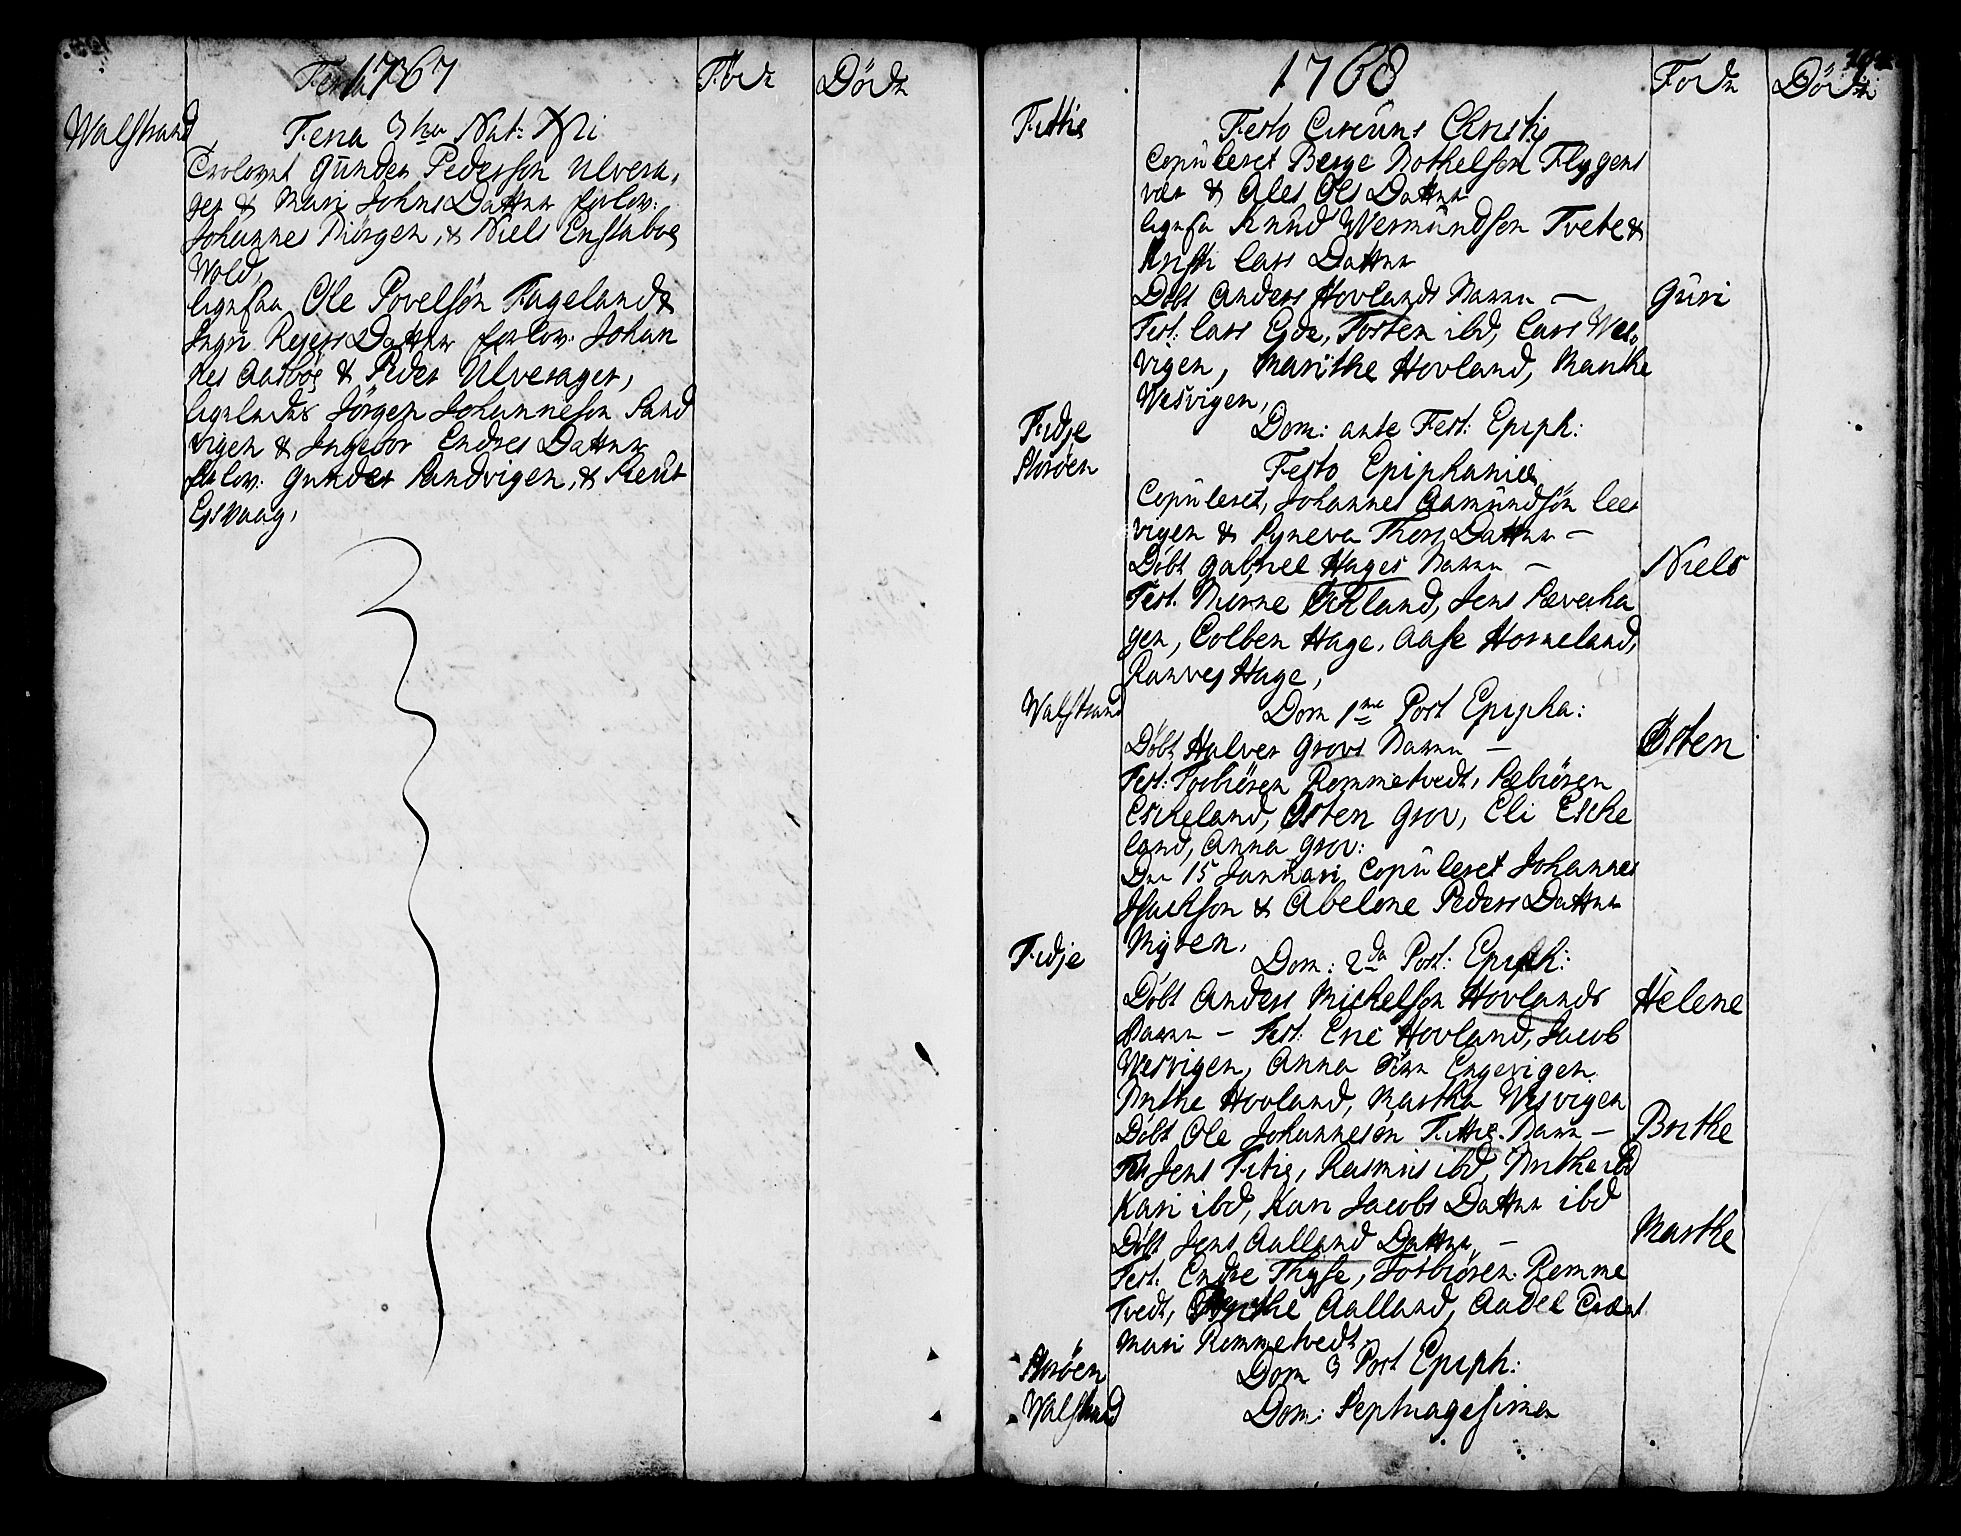 1767
Födt
Död
Walstrand
Feria 3tia Nat: Xti
Trolovet Gunder Pederssøn Ulvera,
ger & Mari Johns Datter forlov:
Johannes Mirgen, & Niels Enstaboe
Wold,
ligesaa Ole Povelsøn Fageland &
Ingri Rejers Datter forlov: Johan
nes Aasboe & Peder Ulverager,
ligeledes Jörgen Johanneson Sand
vigen & Ingebor Endres Datter
forlov: Gunder Sandvigen, & Sient
Eysvaag,
1768
Født
Död
Fittie
Festo Circums Christi
Copuleret Berge Bothelson Flygens
vær & Ales Ols Datter
ligesa Knud Wermundson Tvete &
Kristi Lars Datter
Döbt Anders Hovlands Barn —
Guri
Test: Lars Eide, Torsten ibd, Lars Wes,
vigen, Marithe Hovland, Marthe
Wesvigen,
Fidje
Dom: ante Fest: Epiph:
Storöen
Festo Epiphaniæ
Copuleret, Johannes Aamundsøn Leer
vigen & Synneva Thors Datter —
Döbt Gabriel Hages Barn —
Niels
Test. Mirne Aaland, Jens Sæverha
gen, Colben Hage, Aase Horneland,
Ranvej Hage,
Walstrand
Dom 1me Post Epipha:
Döbt Halver Grovs Barn —
Östen
Test: Torbiören Remmetvedt, Sæbiören
Eskeland, Östen Grov, Eli Eske
land, Anna Grov:
Den 15 Januari Copuleret Johannes
Isackson & Abelone Peders Datter
Myren,
Fidje
Dom: 2da Post: Epiph:
Döbt Anders Michelson Hovlands
Helene
Barn — Test: Eric Hovland, Jacob
Wesvigen, Anna Engevigen
Brithe Hovland, Martha Wesvigen
Döbt Ole Johannesön Fittie Barn —
Brithe
Test Jens Fitie, Rasmus ibd, Brithe ibd
Kari ibd, Kari Jacobs Datter ibd
Döbt Jens Aalland Datter —
Marthe
Test: Endre Thyse, Torbiören Remme
tvedt, Brithe Aalland, Aadel
Mari Remmetvedt
Storöen
Dom 3 Post Epiph:
Walstrand
Dom: Septuagesima